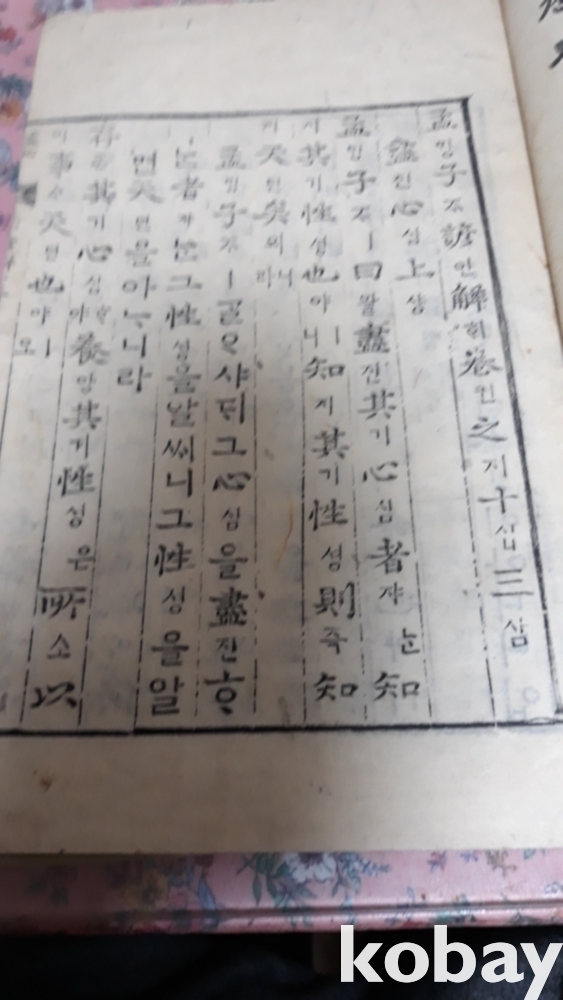 孟ᄆᆡᆼ子ᄌᆞ諺언解ᄒᆡ卷권之지十십三삼
盡진心심上샹
孟ᄆᆡᆼ子ᄌᆞㅣ曰왈盡진其기心심者쟈ᄂᆞᆫ知
지其기性셩也야ㅣ니知지其기性셩則즉知
지天텬矣의니라
孟ᄆᆡᆼ子ᄌᆞㅣᄀᆞᆯᄋᆞ샤ᄃᆡ그心심을盡진ᄒᆞ
ᄂᆞᆫ者쟈ᄂᆞᆫ그性셩을알ᄊᆡ니그性셩을알
면天텬을아ᄂᆞ니라
存존其기心심ᄒᆞ야養양其기性셩은所소以
이事ᄉᆞ天텬也야ㅣ오
kobay